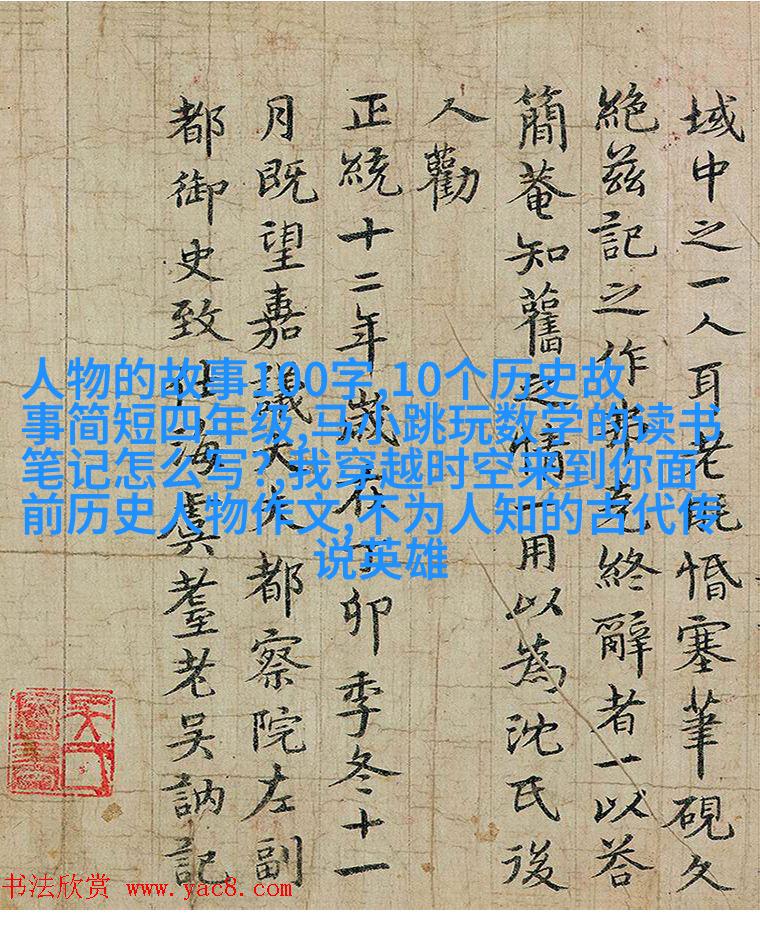 域中之一人耳老既惛塞筆硯久
絶兹記之作弗克終辭者一以荅
簡菴知舊之情一用以為沈氏後
人勸
正統十二年歲在丁卯季冬十一
月既望嘉議大夫都察院左副
都御史致仕海虞耄老吴訥記
人物的故事100字,10个历史故
事简短四年级,马小跳玩数学的读书
笔记怎么写?,我穿越时空来到你面
前历史人物作文,不为人知的古代传
说英雄
书法欣赏 www.yac8.com